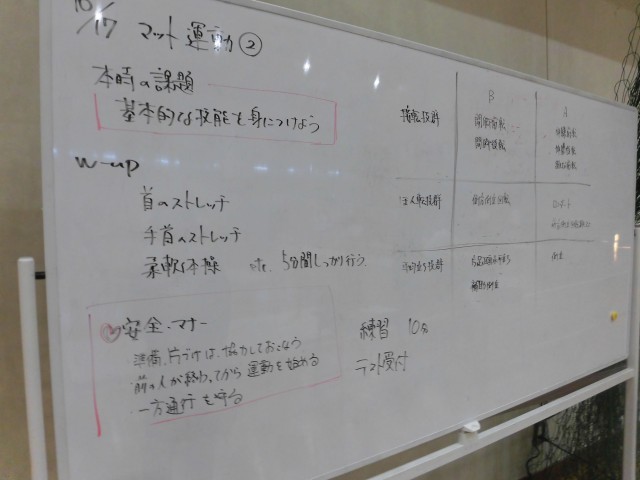 10/17 マット運動②
本時の課題
基本的な技能を身につけよう
W-up
首のストレッチ
手首のストレッチ
柔軟体操 etc. 5分間しっかり行う
安全・マナー
準備、片づけは、協力しておこなう
前の人が終わってから運動を始める
一方通行を守る
練習 10分
テスト受付
B
A
接転技群
開脚前転
開脚後転
伸膝前転
ロンダート
倒立